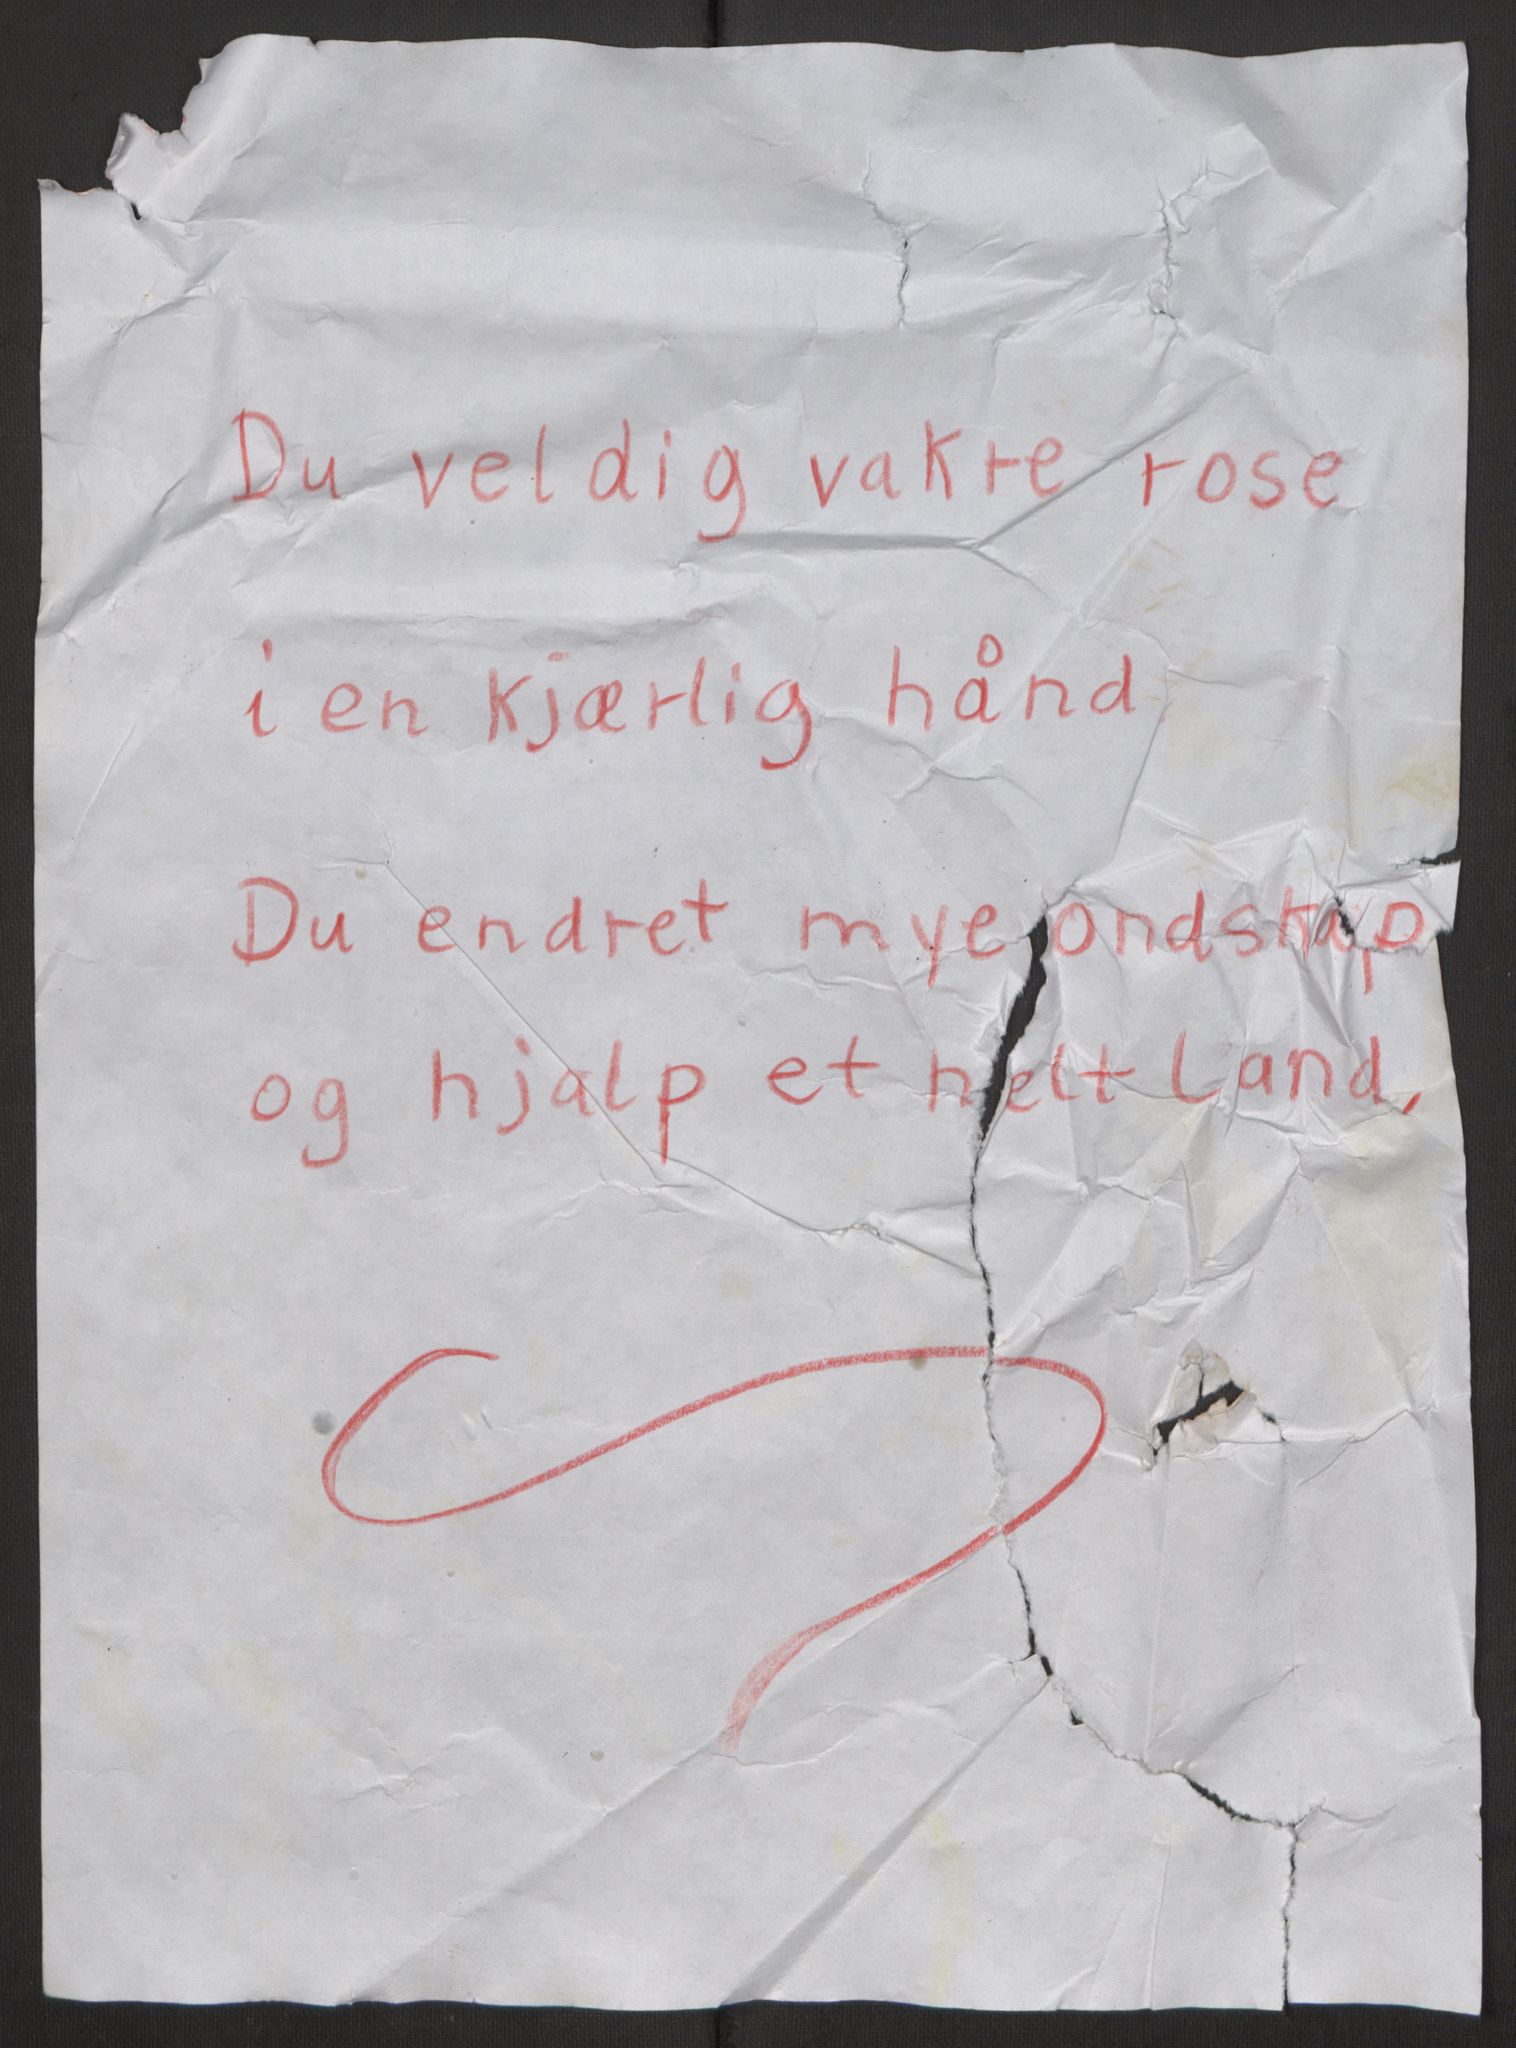 Du veldig vakre rose
i en kjærlig hånd.
Du endret mye ondskap
og hjalp et helt land.